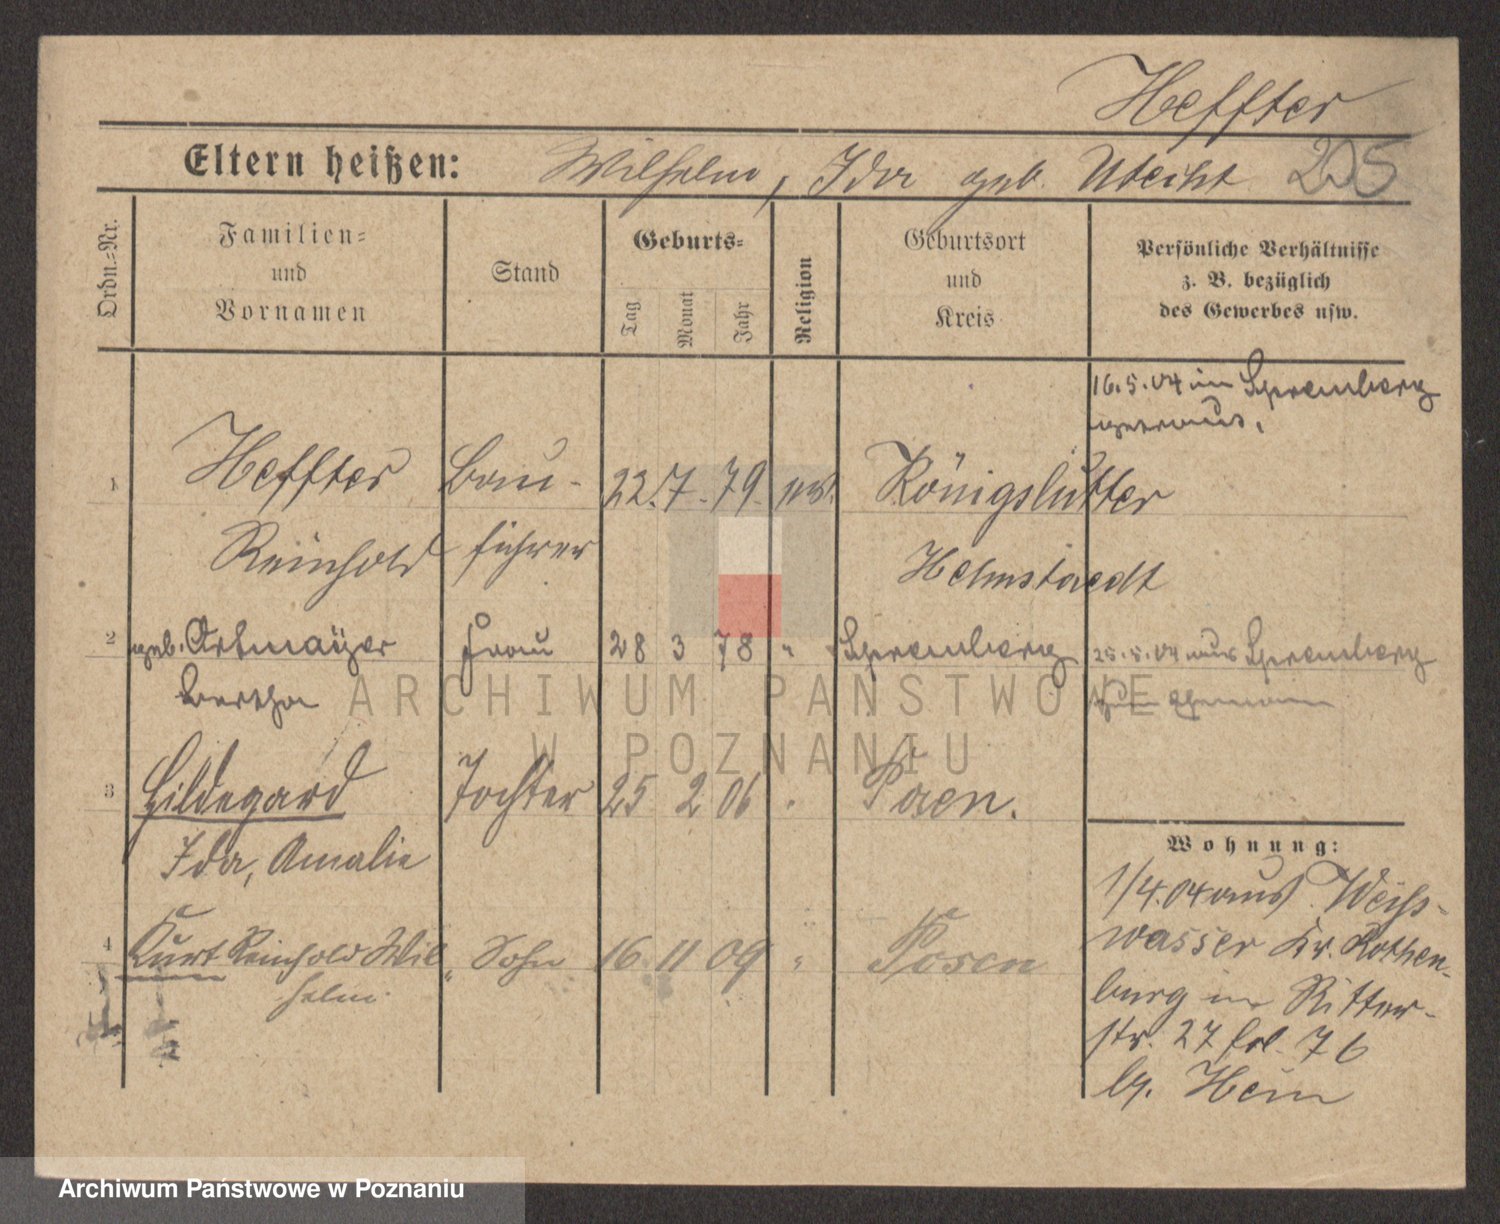 Heffter
Eltern heißen: Wilhelm, Ida geb. Utecht 205
Ordn.=Nr.
Familien=
und
Vornamen
Stand
Geburts=
Tag
Monat
Jahr
Religion
Geburtsort
und
Kreis
Persönliche Verhältnisse
z. B. bezüglich
des Gewerbes usw.
16.5.04 in Spremberg
getraut.
1 Heffter Bau- 22. 7. 79. ev. Königslutter
Reinhold führer Helmstaedt
2 geb. Artmayer Frau 28 3 78 " Spremberg 25.5.04 aus Spremberg
Bertha zum Ehemann
3 Hildegard Tochter 25 2 06 " Posen.
Ida, Amalie
4 Kurt Reinhold Wil Sohn 16 11 09 " Posen
helm
Wohnung:
1/4.04 aus Weiss-
wasser Kr. Rothen-
burg in Ritter-
str. 27 76
b. Hein
ARCHIWUM PAŃSTWOWE
W POZNANIU
Archiwum Państwowe w Poznaniu